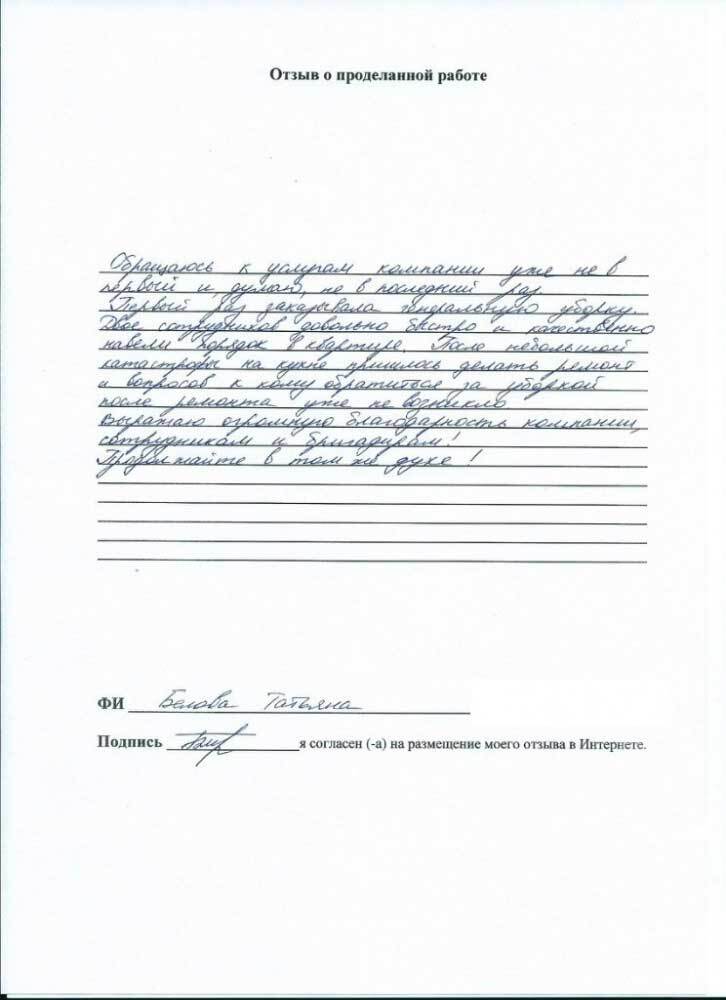 Отзыв о проделанной работе
Обращаюсь к услугам компании уже не в
первый и думаю, не в последний раз.
Первый раз заказывала генеральную уборку.
Двое сотрудников довольно быстро и качественно
навели порядок в квартире. После небольшой
катастрофы на кухне пришлось делать ремонт
и вопросов к кому обратиться за уборкой
после ремонта уже не возникло.
Выражаю огромную благодарность компании,
сотрудникам и бригадирам!
Продолжайте в том же духе!
ФИ Белова Татьяна
Подпись я согласен (-а) на размещение моего отзыва в Интернете.